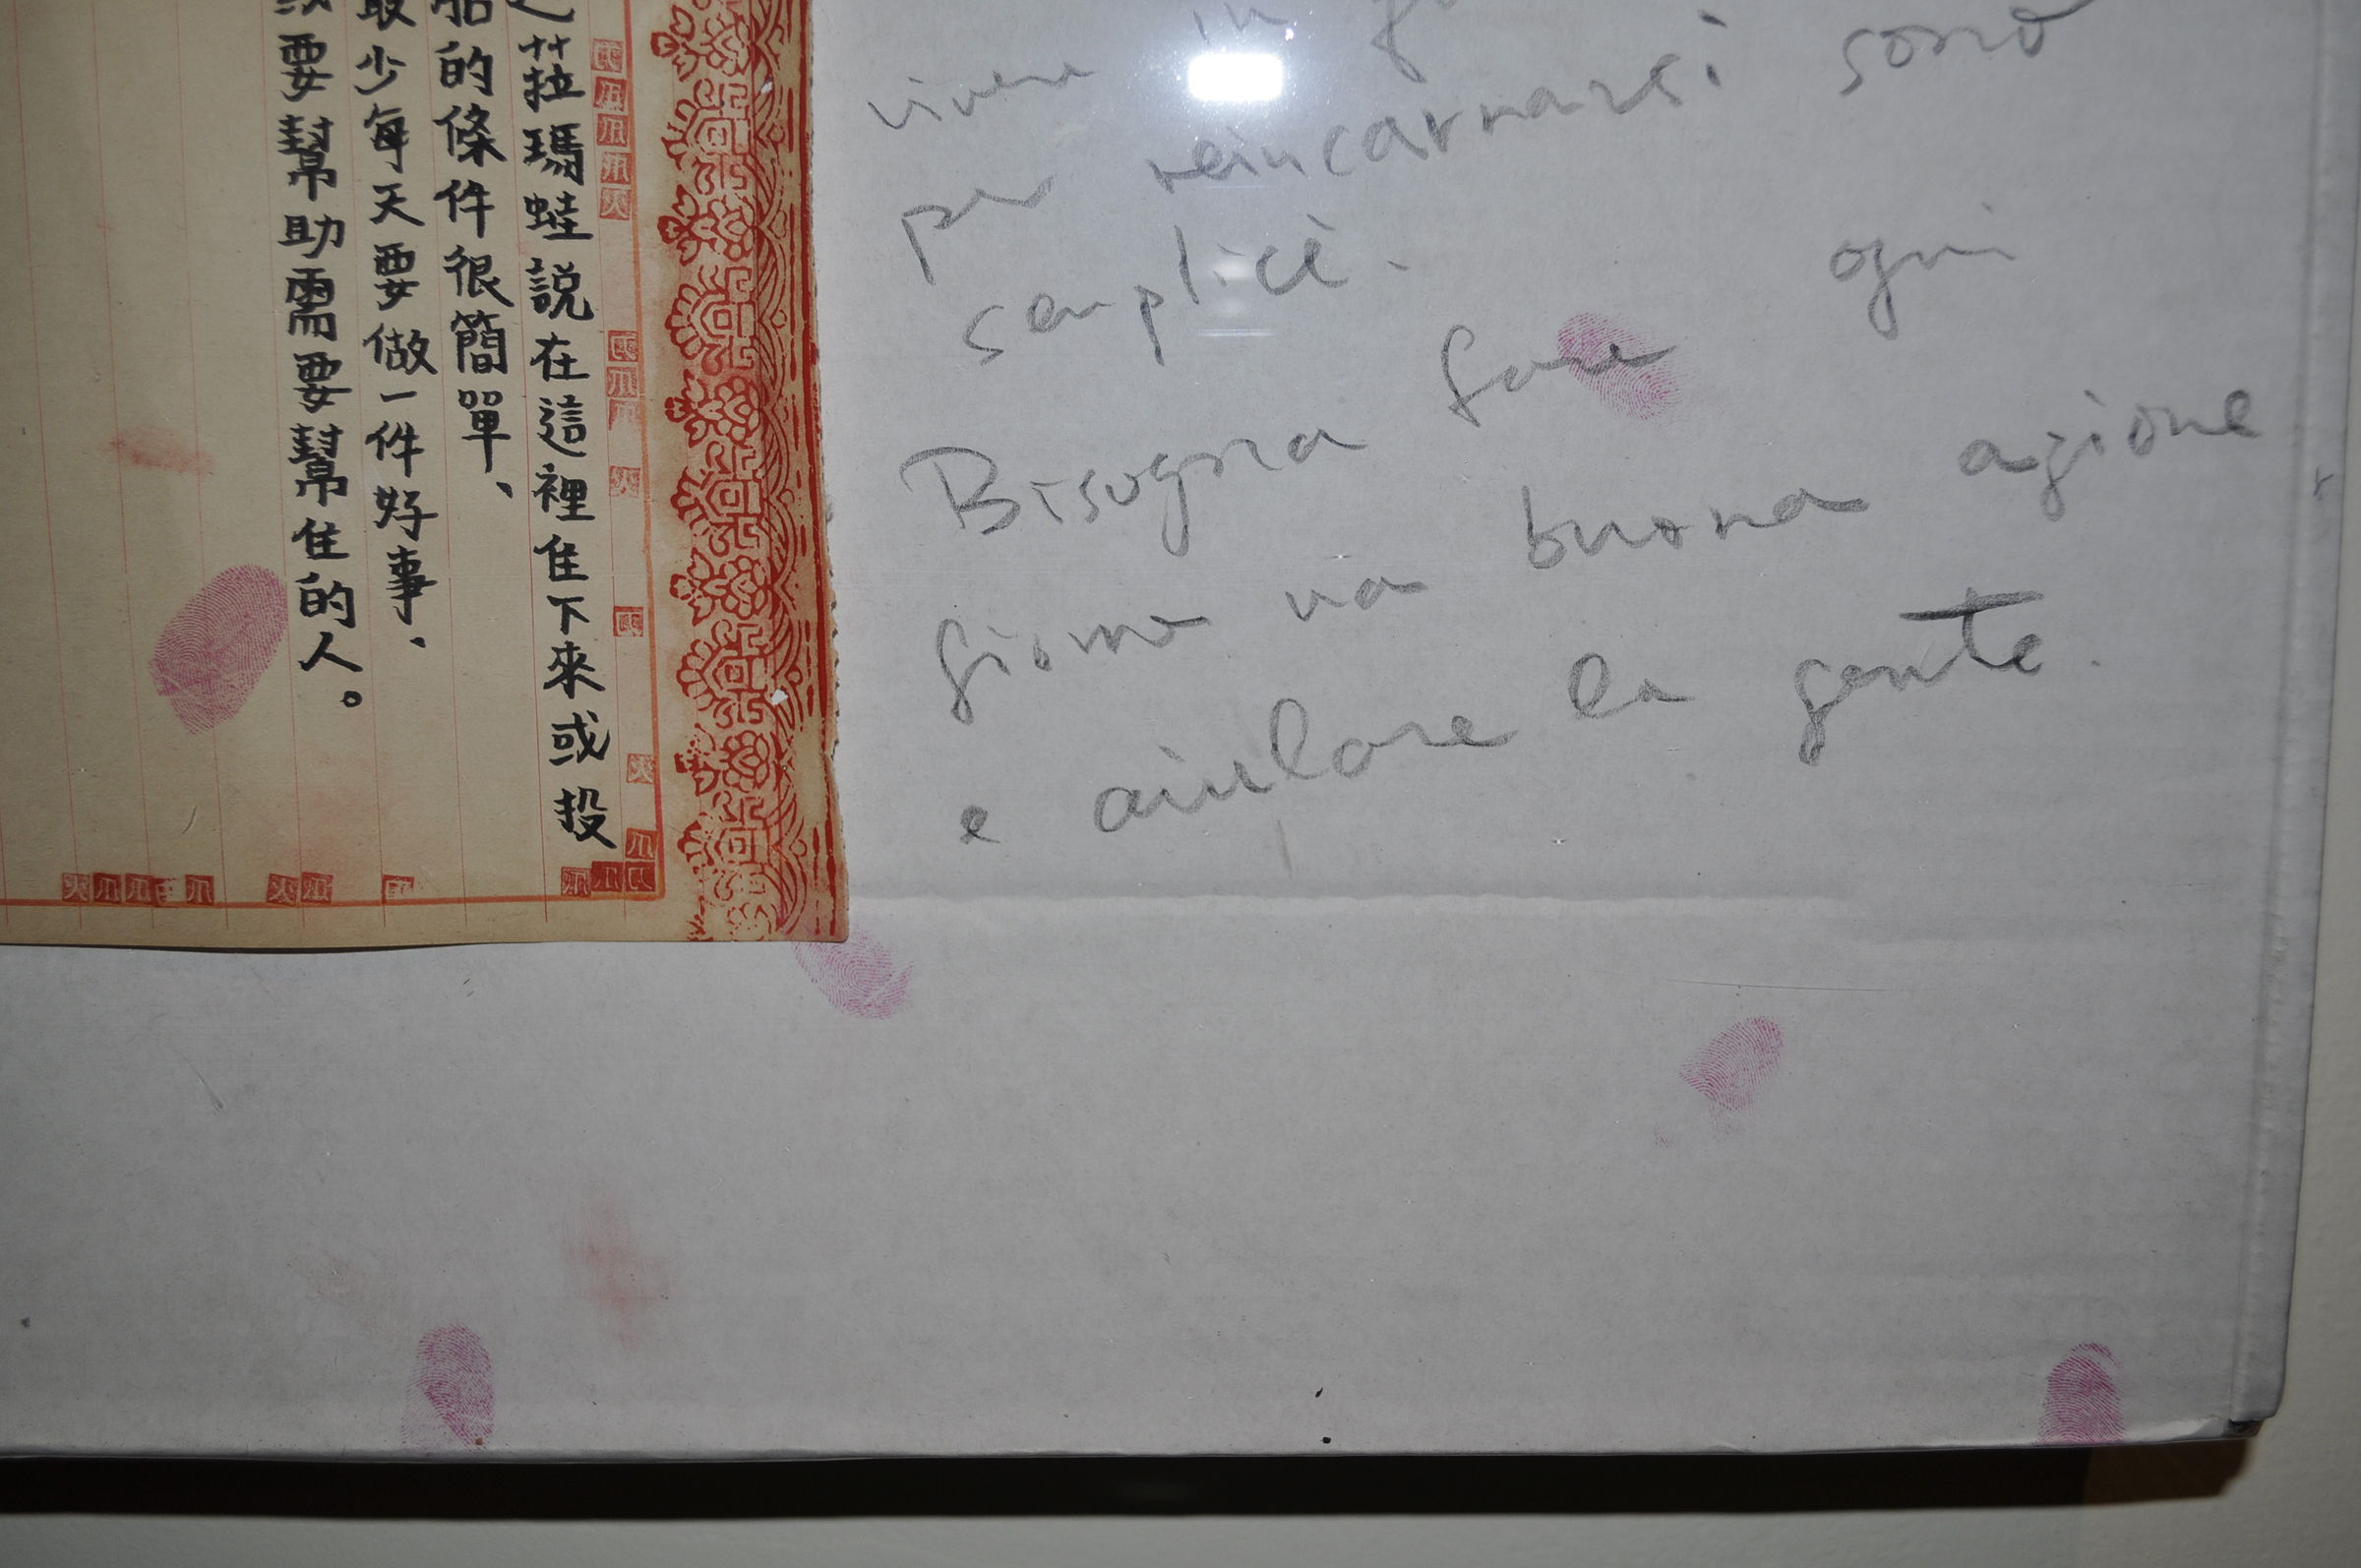 菈瑪蛙説在這裡住下來或投
胎的條件很簡單、
最少每天要做一件好事、
或要幫助需要幫住的人。
vivere in
per reincarnarsi sono
semplici.
Bisogna fare ogni
giorno una buona azione
e aiutare la gente.